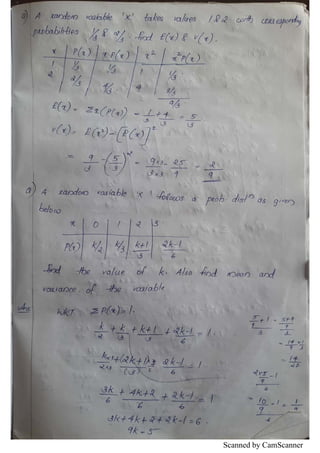 Q) A random variable 'x' takes values 1 & 2 with corresponding
probabilities 1/3 & 2/3. find E(x) & V(x).
x P(x) x·P(x) x² x²P(x)
1 1/3 1/3 1 1/3
2 2/3 4/3 4 8/3
9/3
E(x) = Σx(P(x)) = 1/3 + 4/3 = 5/3
V(x) = E(x²) - [E(x)]²
= 9/3 - (5/3)² = 9×3/3×3 - 25/9 = 2/9
Q) A random variable x' follows a prob distⁿ as given
below
x 0 1 2 3
P(x) k/2 k/3 k+1/3 2k-1/6
find the value of k. Also find mean and
variance of the variable
Ans WKT ΣP(x)=1.
k/2 + k/3 + k+1/3 + 2k-1/6 = 1.
2k-1/6 = 1
3k/6 + 4k+2/6 + 2k-1/6 = 1
3k+4k+2+2k-1=6.
9k=5
Scanned by CamScanner